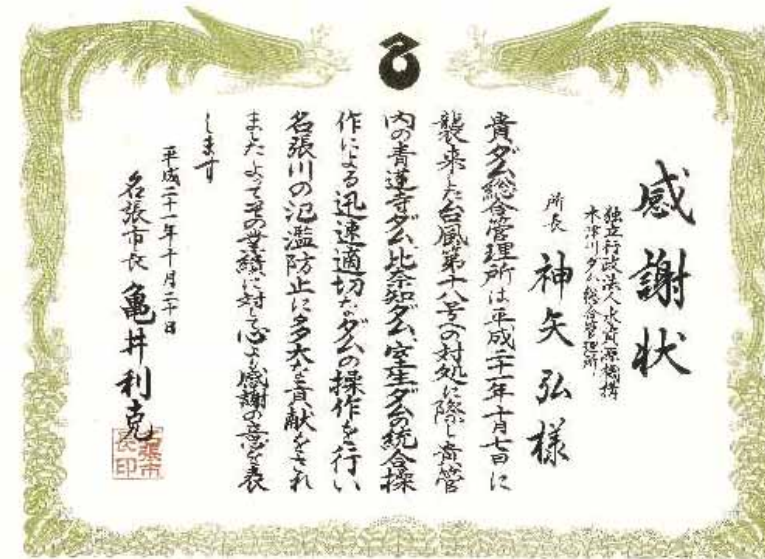 感謝状
独立行政法人水資源機構
木津川ダム総合管理所
所長 神矢弘様
貴ダム総合管理所は平成二十一年十月七日に
襲来した台風第十八号への対処に際し貴管
内の青蓮寺ダム、比奈知ダム、室生ダムの統合操
作による迅速適切なダムの操作を行い
名張川の氾濫防止に多大な貢献をされ
ましたよってその業績に対して心より感謝の意を表
します
平成二十一年十月二十日
名張市長 亀井利克
名張市
長印